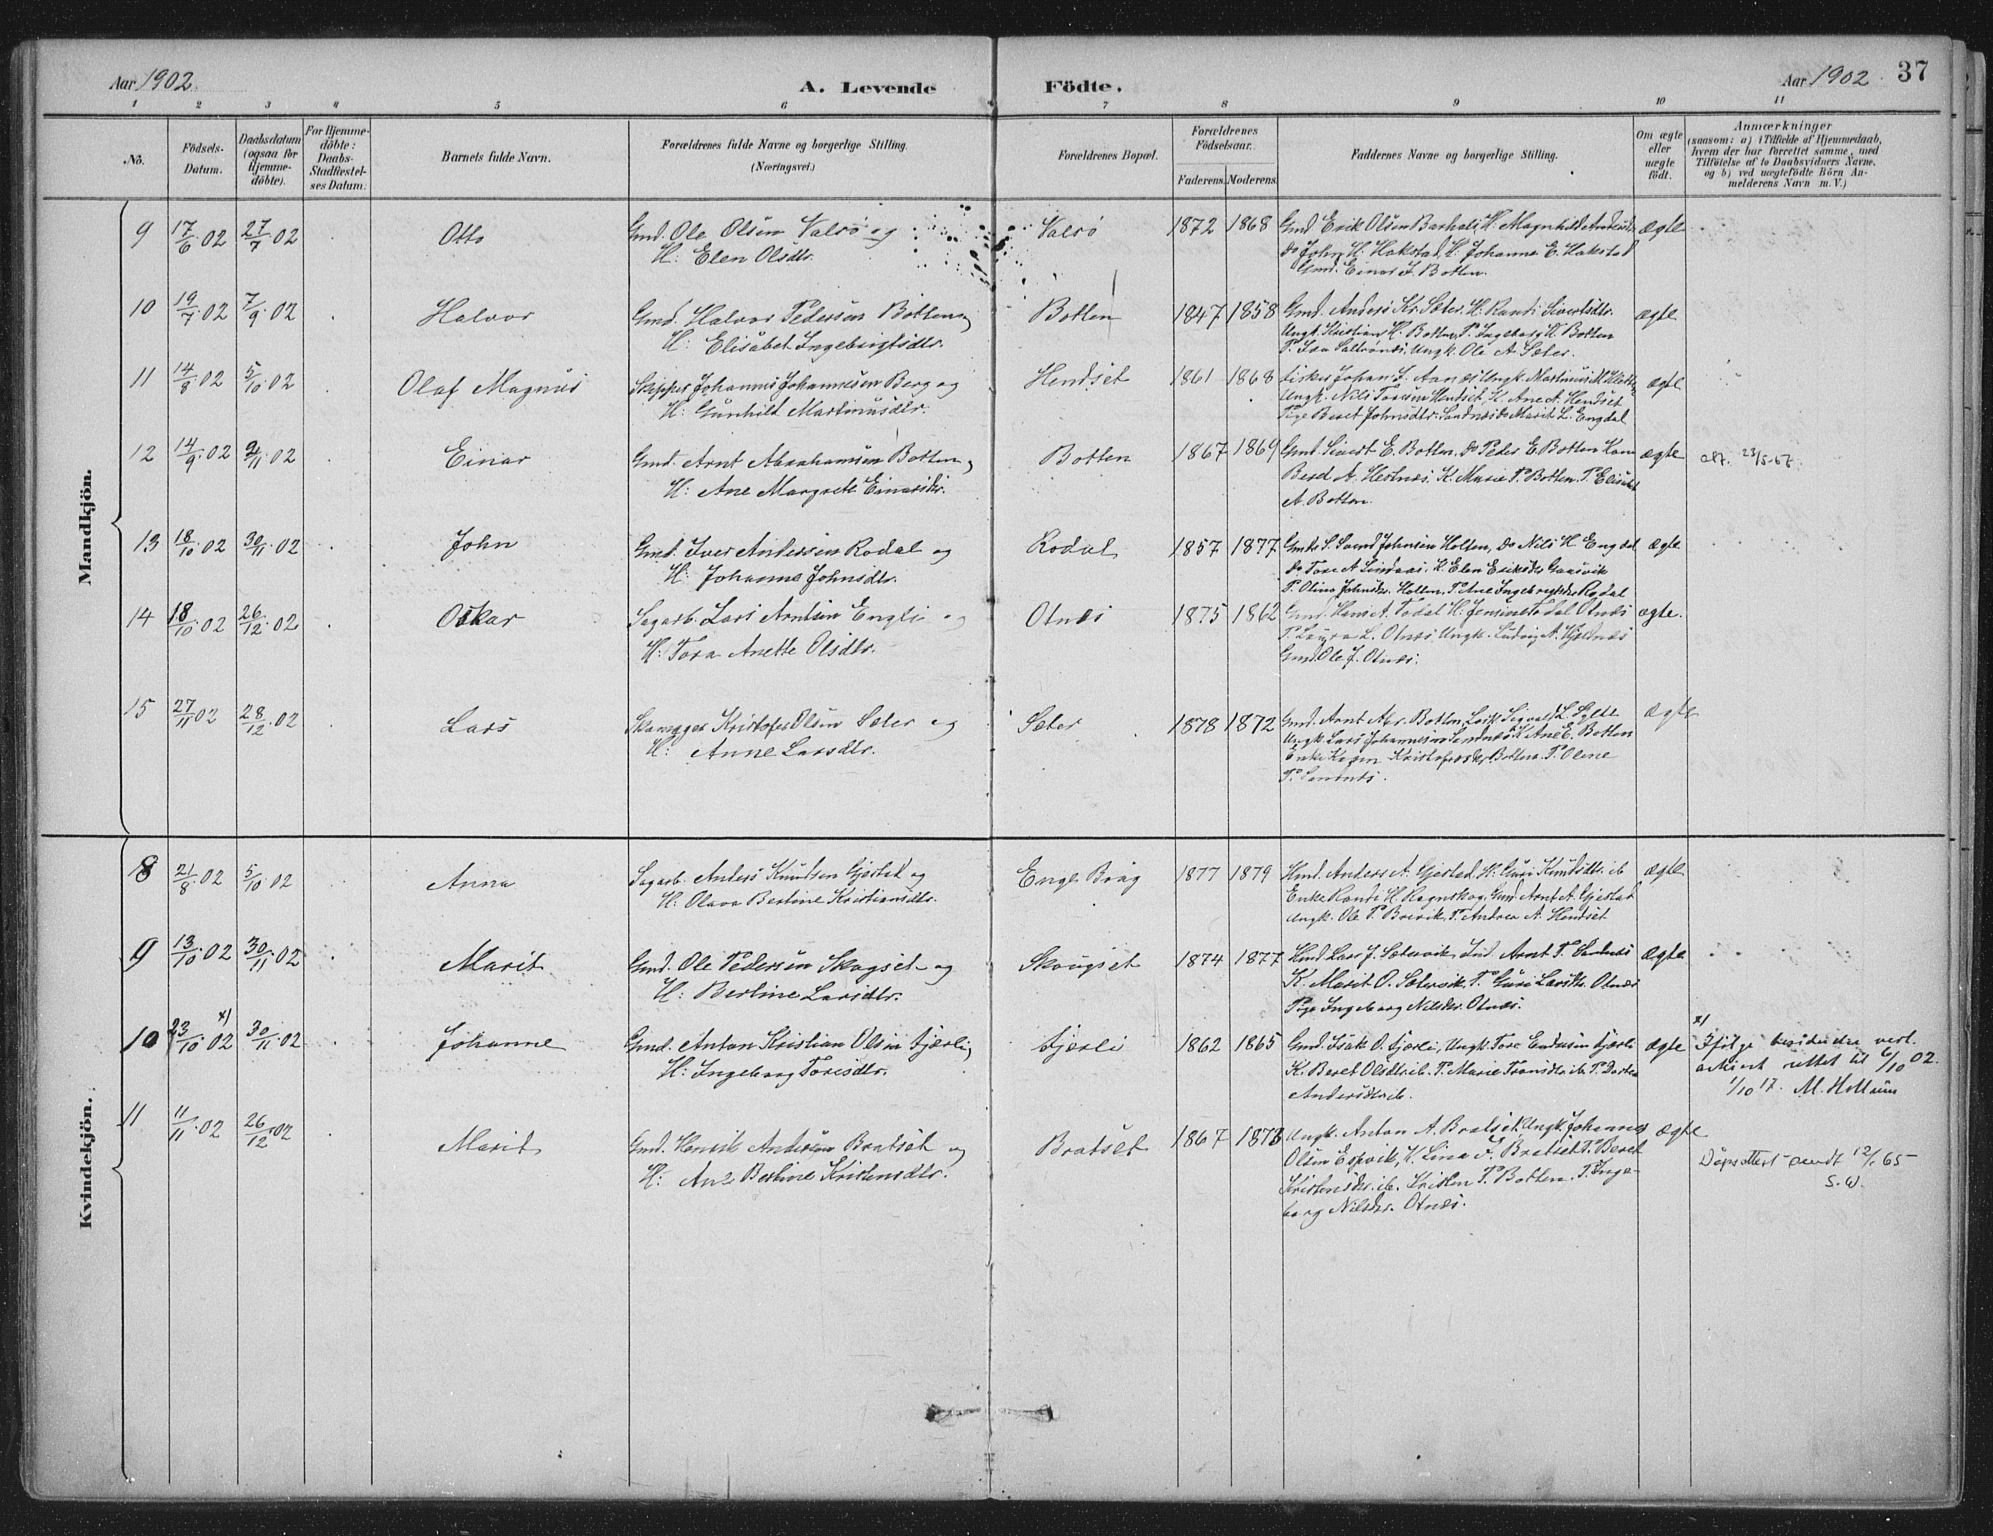 Aar 1902.
A. Levende Födte.
Aar 1902. 37
1 2 3 4 5 6 7 8 9 10 11
No.
Födsels-Datum.
Daabsdatum (ogsaa for Hjemmedöbte).
For Hjemmedöbte: Daabs-Stadfæstelses Datum.
Barnets fulde Navn.
Forældrenes fulde Navne og borgerlige Stilling. (Næringsvei.)
Forældrenes Bopæl.
Forældrenes Födselsaar.
Faderens. Moderens.
Faddernes Navne og borgerlige Stilling.
Om ægte eller uægte födt.
Anmærkninger
(saasom: a) i Tilfælde af Hjemmedaab, hvem der har forrettet samme, med Tilföielse af to Daabsvidners Navne. og b) ved uægtefödte Börn Anmelderens Navn m. V.)
Mandkjön.
9 17/6 02 27/7 02 Otto Gmd. Ole Olsen Valsø og Valsø 1872 1868 Gmd Erik Olsen H. Magnhild ægte
H: Elen Olsdtr. do John H. Hakstad, H. Johanna E. Hakstad
Gmd. Einar J. Botten.
10 19/7 02 7/9 02 Halvor Gmd. Halvor Pedersen Botten og Botten 1847 1858 Gmd. Anders Kr. Sæter. H. Randi Sivertsdtr. ægte
H: Elisabet Ingebrigtsdtr. Ungk. Kristian H. Botten, P. Ingeborg H. Botten
Ungk. Ole A. Sæter.
11 14/8 02 5/10 02 Olaf Magnus Skipper Johannes Johannesen Berg og Hendset 1861 1868 Fisker Johan J. Aanes Ungk. Martinus M. ægte
H: Gunhild Martinusdtr. Ungk. Nils Toresen Hendset K. Ane A. Hendset
Pige Beret Johnsdtr. Sandnes do Marit L. Engdal
12 14/9 02 2/11 02 Einar Gmd. Arnt Abrahamsen Botten og Botten 1867 1869 Gmd. Sivert E. Botten, do Peder E. Botten Kone ægte att. 23/5-67.
H: Ane Margrete Einarsdtr. Berd A. Hestnes, K. Marie P. Botten. P. Elisabet
A. Botten.
13 18/10 02 30/11 02 John Gmd. Iver Andersen Rodal og Rodal 1857 1877 Gmds S. Svend Johnsen Holten, do Nils H. Engdal ægte
H: Johanna Johnsdtr. do Tore A. Lindaas. H. Elen Eriksdtr Gaasvik
P. Olina Johnsdtr. Holten, P. Ane Ingebrigtsdtr Rodal
14 18/10 02 26/12 02 Oskar Sagarb. Lars Arntsen Engli og Otnes 1875 1862 Gmd. Hans A. Todal H. Jensine Todal Otnes ægte.
H: Tora Anette Olsdtr. P. Laura L. Otnes Ungk. Ludvig A. Hjelnes
Gmd. Ole J. Otnes.
15 27/11 02 28/12 02 Lars Skomager Kristofer Olsen Sæter og Sæter 1878 1872 Gmd. Arnt Abr. Botten, Sigvald L. Sylte ægte
H: Anne Larsdtr. Ungk Lars Johannesen Sandnes K Ane E. Botten
Enke Karen Kristofersdtr Botten. P. Oline
P.
Kvindekjön.
8 21/8 02 5/10 02 Anna Sagarb. Anders Knudsen Gjersted og Enge Brug 1877 1879 Hmd. Anders A. Gjersted. H. Guri Knudsdtr. ib ægte
H: Olava Bertine Kristiansdtr. Enke Randi H. Rognskog, Gmd Arnt A. Gjestad
Ungk. Ole P. Brevik. P. Andrea A. Hendset
9 13/10 02 30/11 02 Marit Gmd. Ole Pedersen Skogset og Skougset 1874 1877 Hmd Lars J. Sætervik, Ind. Arnt T. Sandnes ægte
H: Bertine Larsdtr. K. Marit O. Sætervik. P. Guri Larsdtr. Otnes
Pige Ingeborg Nilsdtr. Otnes.
10 23/10 02 x) 30/11 02 Johanne Gmd. Anton Kristian Olsen Fjærli, Fjærli 1862 1865 Gmd. Isak O. Fjærli, Ungk. Tore Endresen Fjærli ægte
H: Ingeborg Toresdtr. K. Beret Olsdtr. ib. P. Marie Tronsdtr. ib. P. Dortea
Andersdtr. ib.
x) Ifølge besidder vert. arkivet rettet til 6/10 02.
1/10 17. M. Hollum
11 11/11 02 26/12 02 Marit Gmd. Henrik Andersen Bratset og Bratset 1867 1873 Ungk. Anton A. Bratset Ungk. Johannes ægte
H: Ane Bertine Kristensdtr. Olsen Espvik, K. Lina J. Bratset P. Beret
Kristensdtr. ib. Kristen P. Botten. P. Ingeborg Nilsdtr. Otnes.
Dåpsattest sendt 12/1 65
S.W.